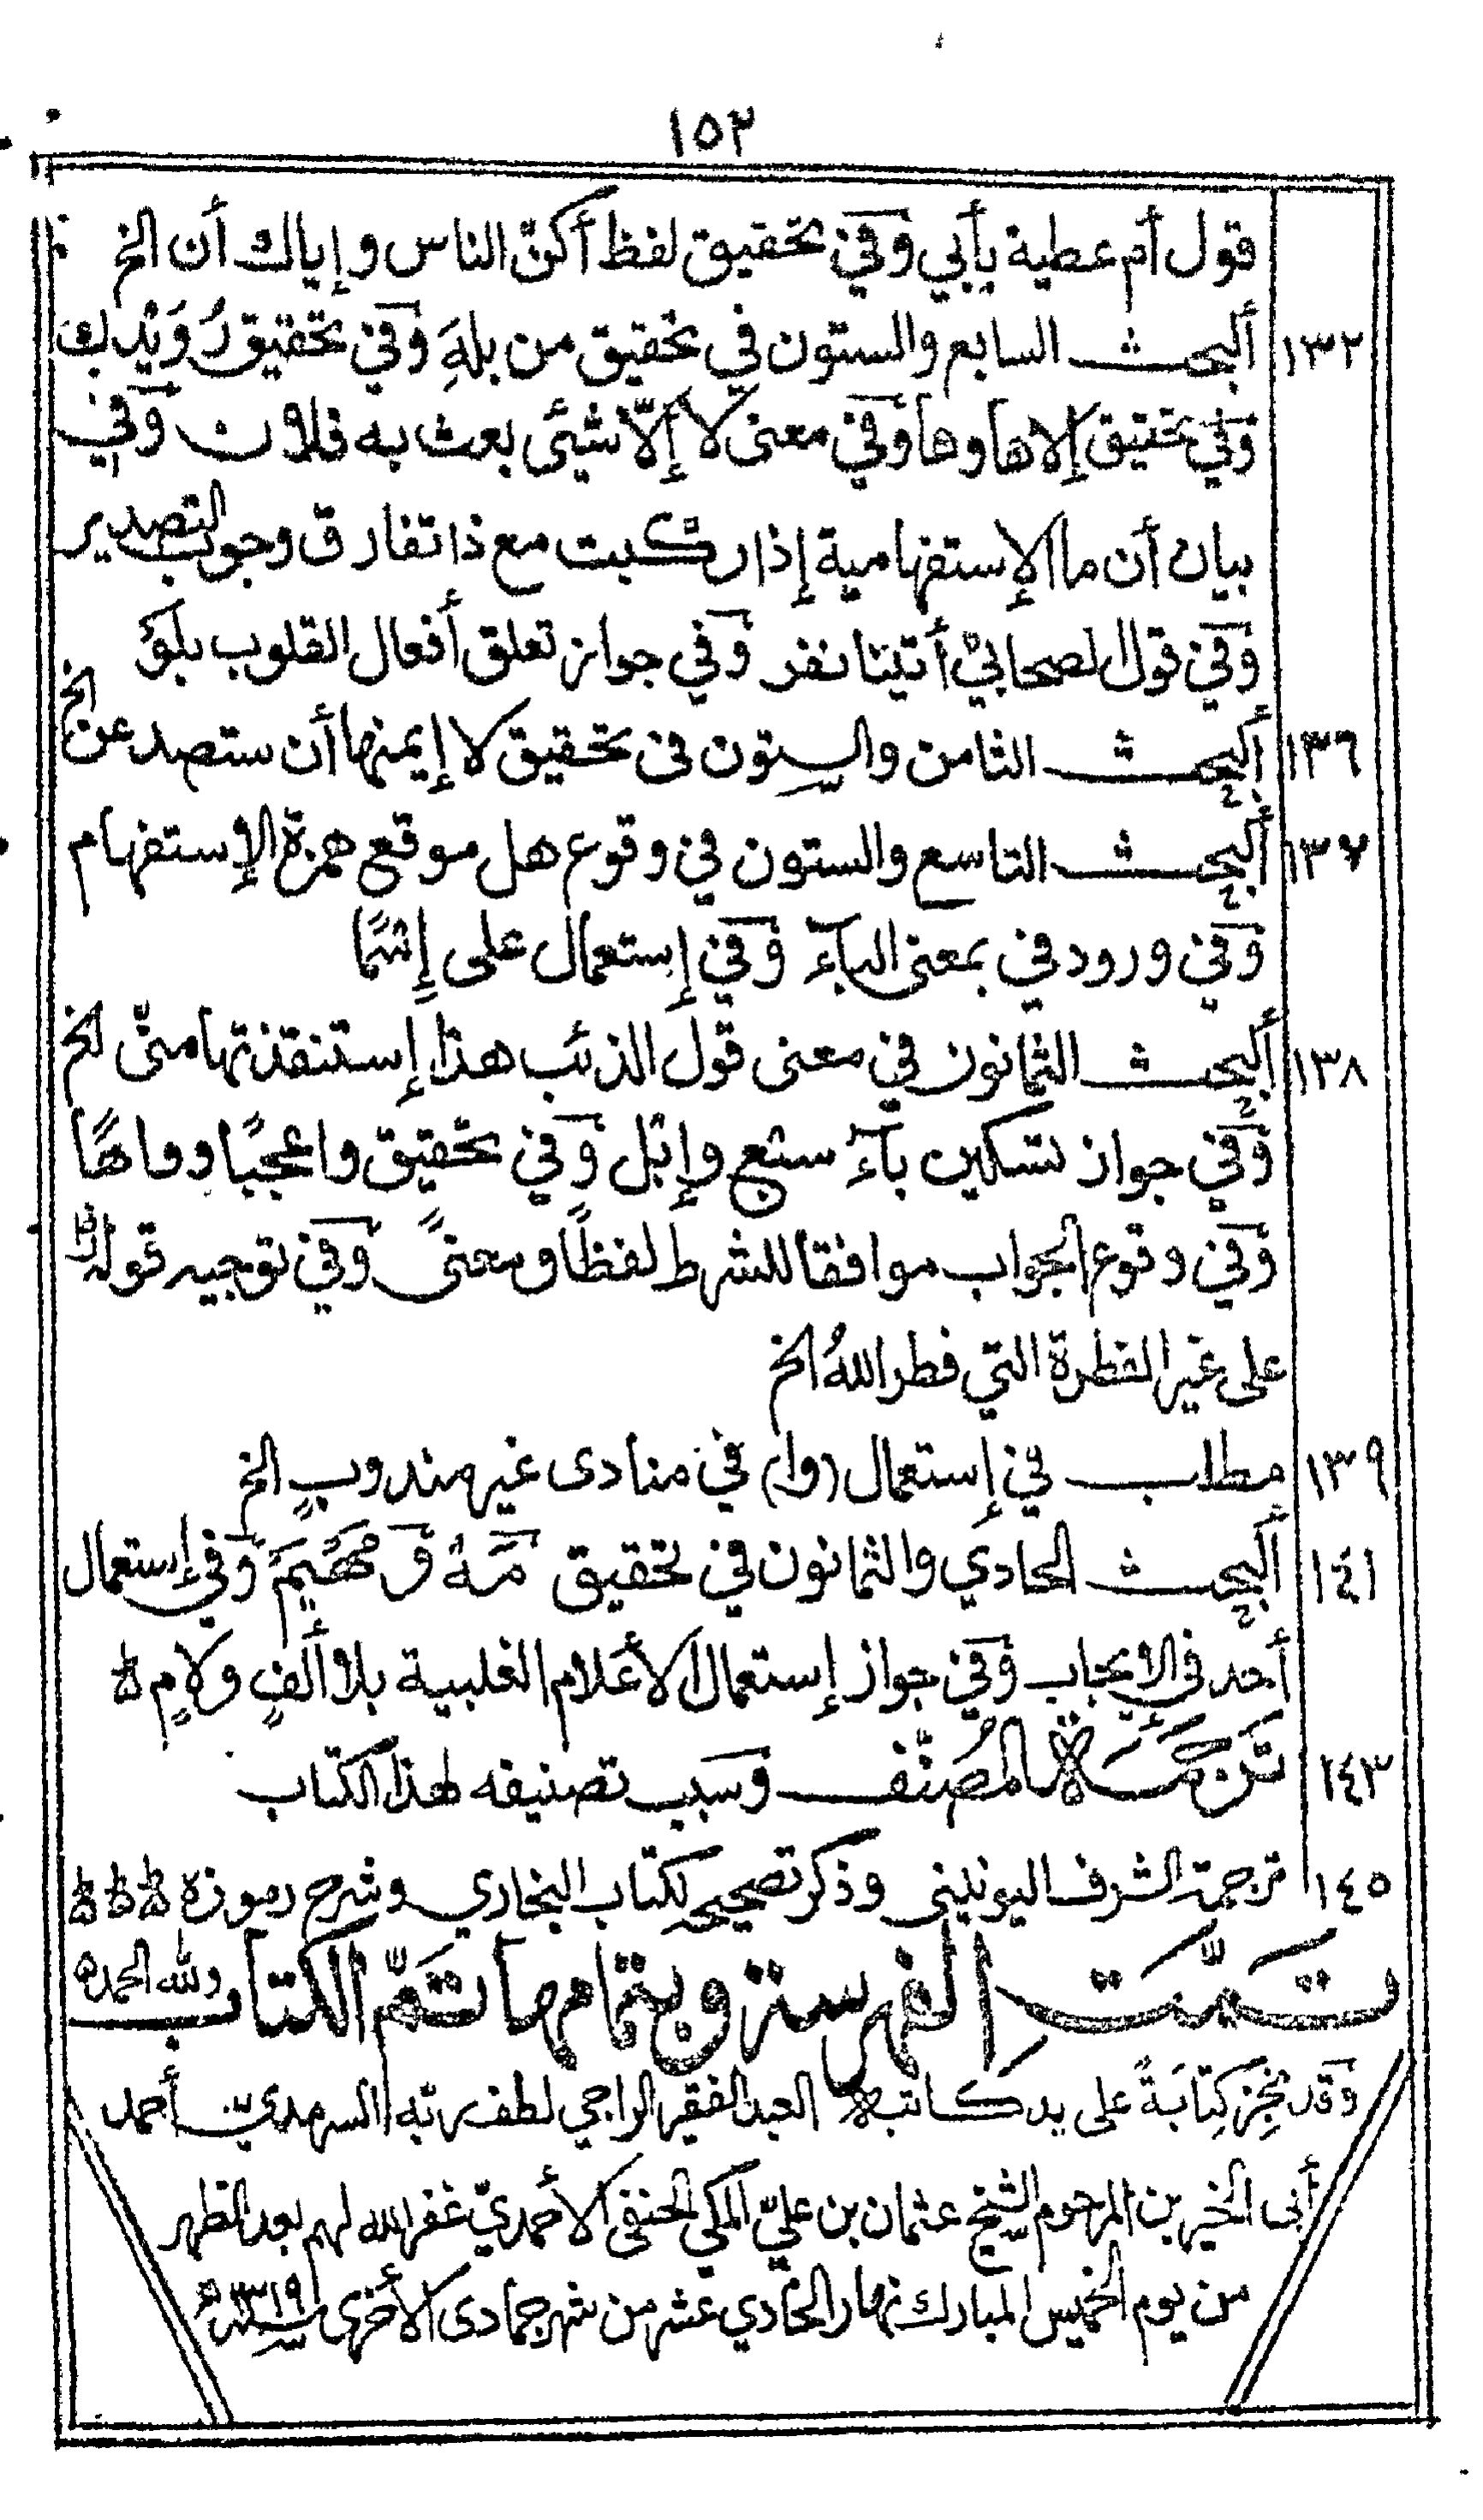 ١٥٢
قول أم عطية بأبي وَفي تحقيق لفظ أكنّ الناس وإياك أن الخ
١٣٢ ألبحث السابع والستون في تحقيق من بلهَ وَفي تحقيق رُوَيْدك
وَفي تحقيق إلاها وها وَفي معنى لا إلّا شيئ بعث به فلان وَفي
بيان أن ما الإستفهامية إذا ركبت مع ذا تفارق وجوب التصدير
وَفي قول الصحابيْ أتينا نفر وَفي جواز تعلق أفعال القلوب بلَوْ
١٣٦ ألبحث الثامن والستون في تحقيق لا إيمنها أن ستصد عن الخ
١٣٧ ألبحث التاسع والستون في وقوع هل موقع همزة الإستفهام
وَفي ورود في بمعنى البآءَ وَفي إستعمال على إسْمًا
١٣٨ ألبحث الثمانون في معنى قول الذئب هذا إستنقذتها منّي الخ
وَفي جواز تسكين بآءَ سبْع وإبْل وَفي تحقيق واعجبًا وواهًا
وَفي وقوع الجواب موافقا للشرط لفظًا ومعنىً وَفي توجيه قوله
على غير الفطرة التي فطر اللهُ الخ
١٣٩ مطلب في إستعمال (وا) في منادى غير مندوبٍ الخ
١٤١ ألبحث الحادي والثمانون في تحقيق مَهْ وَ مَهْيَمْ وَفي إستعمال
أحد في الإيجاب وَفي جواز إستعمال الأعلام الغلبية بلا ألفٍ ولامٍ
١٤٣ تَرجمَة المُصَنِّف وَسبب تصنيفه لهذا الكتاب
١٤٥ ترجمة الشرف اليونيني وذكر تصحيحه لكتاب البخاري وشرح رموزه
تَمّت الفهرسة وبتمامها تَمّ الكتاب ولله الحمد
وَقد نجز كِتابَةً على يد كاتبه العبد الفقير الراجي لطف ربّه السرمديّ أحمد
أبى الخير بن المرحوم الشيخ عثمان بن عليّ المكي الحنفي الأحمديّ غفر الله لهم بعد الظهر
من يوم الخميس المبارك نهار الحادي عشر من شهر جمادى الأخرى سنة ١٣١٩